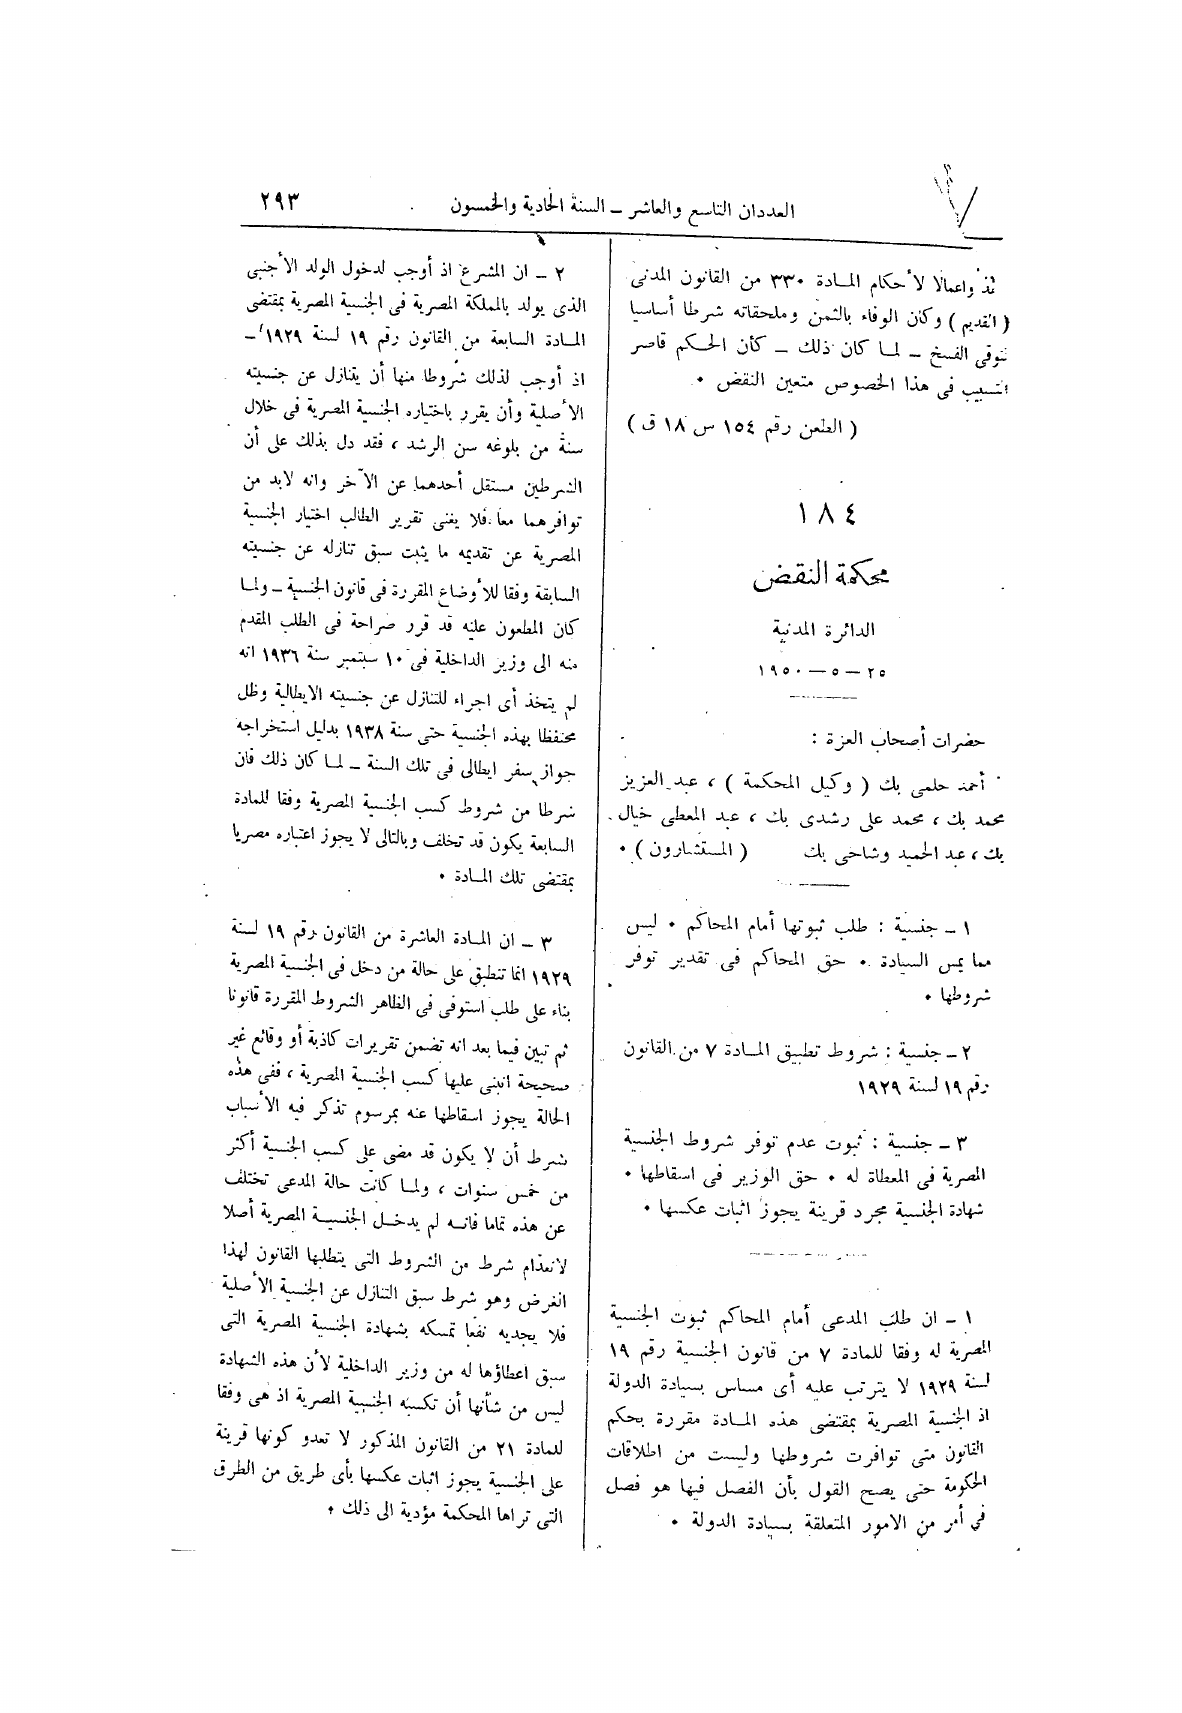 العددان التاسع والعاشر ــ السنة الحادية والخمسون
٢٩٣
ئذ واعمالا لأحكام المادة ٣٣٠ من القانون المدنى
( القديم ) وكان الوفاء بالثمن وملحقاته شرطا أساسيا
توقى الفسخ ــ لما كان ذلك ــ كأن الحكم قاصر
التسبيب فى هذا الخصوص متعين النقض ٠
( الطعن رقم ١٥٤ س ١٨ ق )
١٨٤
محكمة النقض
الدائرة المدنية
٢٥ – ٥ – ١٩٥٠
حضرات أصحاب العزة :
أحمد حلمى بك ( وكيل المحكمة ) ، عبد العزيز
محمد بك ، محمد على رشدى بك ، عبد المعطى خيال
بك ، عبد الحميد وشاحى بك ( المستشارون ) ٠
١ ــ جنسية : طلب ثبوتها أمام المحاكم ٠ ليس
مما يمس السيادة ٠ حق المحاكم فى تقدير توفر
شروطها ٠
٢ ــ جنسية : شروط تطبيق المادة ٧ من القانون
رقم ١٩ لسنة ١٩٢٩
٣ ــ جنسية : ثبوت عدم توفر شروط الجنسية
المصرية فى المعطاة له ٠ حق الوزير فى اسقاطها ٠
شهادة الجنسية مجرد قرينة يجوز اثبات عكسها ٠
١ ــ ان طلب المدعى أمام المحاكم ثبوت الجنسية
المصرية له وفقا للمادة ٧ من قانون الجنسية رقم ١٩
لسنة ١٩٢٩ لا يترتب عليه أى مساس بسيادة الدولة
اذ الجنسية المصرية بمقتضى هذه المادة مقررة بحكم
القانون متى توافرت شروطها وليست من اطلاقات
الحكومة حتى يصح القول بأن الفصل فيها هو فصل
فى أمر من الامور المتعلقة بسيادة الدولة ٠
٢ ــ ان المشرع اذ أوجب لدخول الولد الأجنبى
الذى يولد بالمملكة المصرية فى الجنسية المصرية بمقتضى
المادة السابعة من القانون رقم ١٩ لسنة ١٩٢٩ ــ
اذ أوجب لذلك شروطا منها أن يتنازل عن جنسيته
الأصلية وأن يقرر باختياره الجنسية المصرية فى خلال
سنة من بلوغه سن الرشد ، فقد دل بذلك على أن
الشرطين مستقل أحدهما عن الآخر وانه لابد من
توافرهما معا فلا يغنى تقرير الطالب اختيار الجنسية
المصرية عن تقديمه ما يثبت سبق تنازله عن جنسيته
السابقة وفقا للأوضاع المقررة فى قانون الجنسية ــ ولما
كان المطعون عليه قد قرر صراحة فى الطلب المقدم
منه الى وزير الداخلية فى ١٠ سبتمبر سنة ١٩٣٦ انه
لم يتخذ أى اجراء للتنازل عن جنسيته الايطالية وظل
محتفظا بهذه الجنسية حتى سنة ١٩٣٨ بدليل استخراجه
جواز سفر ايطالى فى تلك السنة ــ لما كان ذلك فان
شرطا من شروط كسب الجنسية المصرية وفقا للمادة
السابعة يكون قد تخلف وبالتالى لا يجوز اعتباره مصريا
بمقتضى تلك المادة ٠
٣ ــ ان المادة العاشرة من القانون رقم ١٩ لسنة
١٩٢٩ انما تنطبق على حالة من دخل فى الجنسية المصرية
بناء على طلب استوفى فى الظاهر الشروط المقررة قانونا
ثم تبين فيما بعد انه تضمن تقريرات كاذبة أو وقائع غير
صحيحة انبنى عليها كسب الجنسية المصرية ، ففى هذه
الحالة يجوز اسقاطها عنه بمرسوم تذكر فيه الأسباب
شرط أن لا يكون قد مضى على كسب الجنسية أكثر
من خمس سنوات ، ولما كانت حالة المدعى تختلف
عن هذه تماما فانه لم يدخل الجنسية المصرية أصلا
لانعدام شرط من الشروط التى يتطلبها القانون لهذا
الغرض وهو شرط سبق التنازل عن الجنسية الأصلية
فلا يجديه نفعا تمسكه بشهادة الجنسية المصرية التى
سبق اعطاؤها له من وزير الداخلية لأن هذه الشهادة
ليس من شأنها أن تكسبه الجنسية المصرية اذ هى وفقا
للمادة ٢١ من القانون المذكور لا تعدو كونها قرينة
على الجنسية يجوز اثبات عكسها بأى طريق من الطرق
التى تراها المحكمة مؤدية الى ذلك ٠